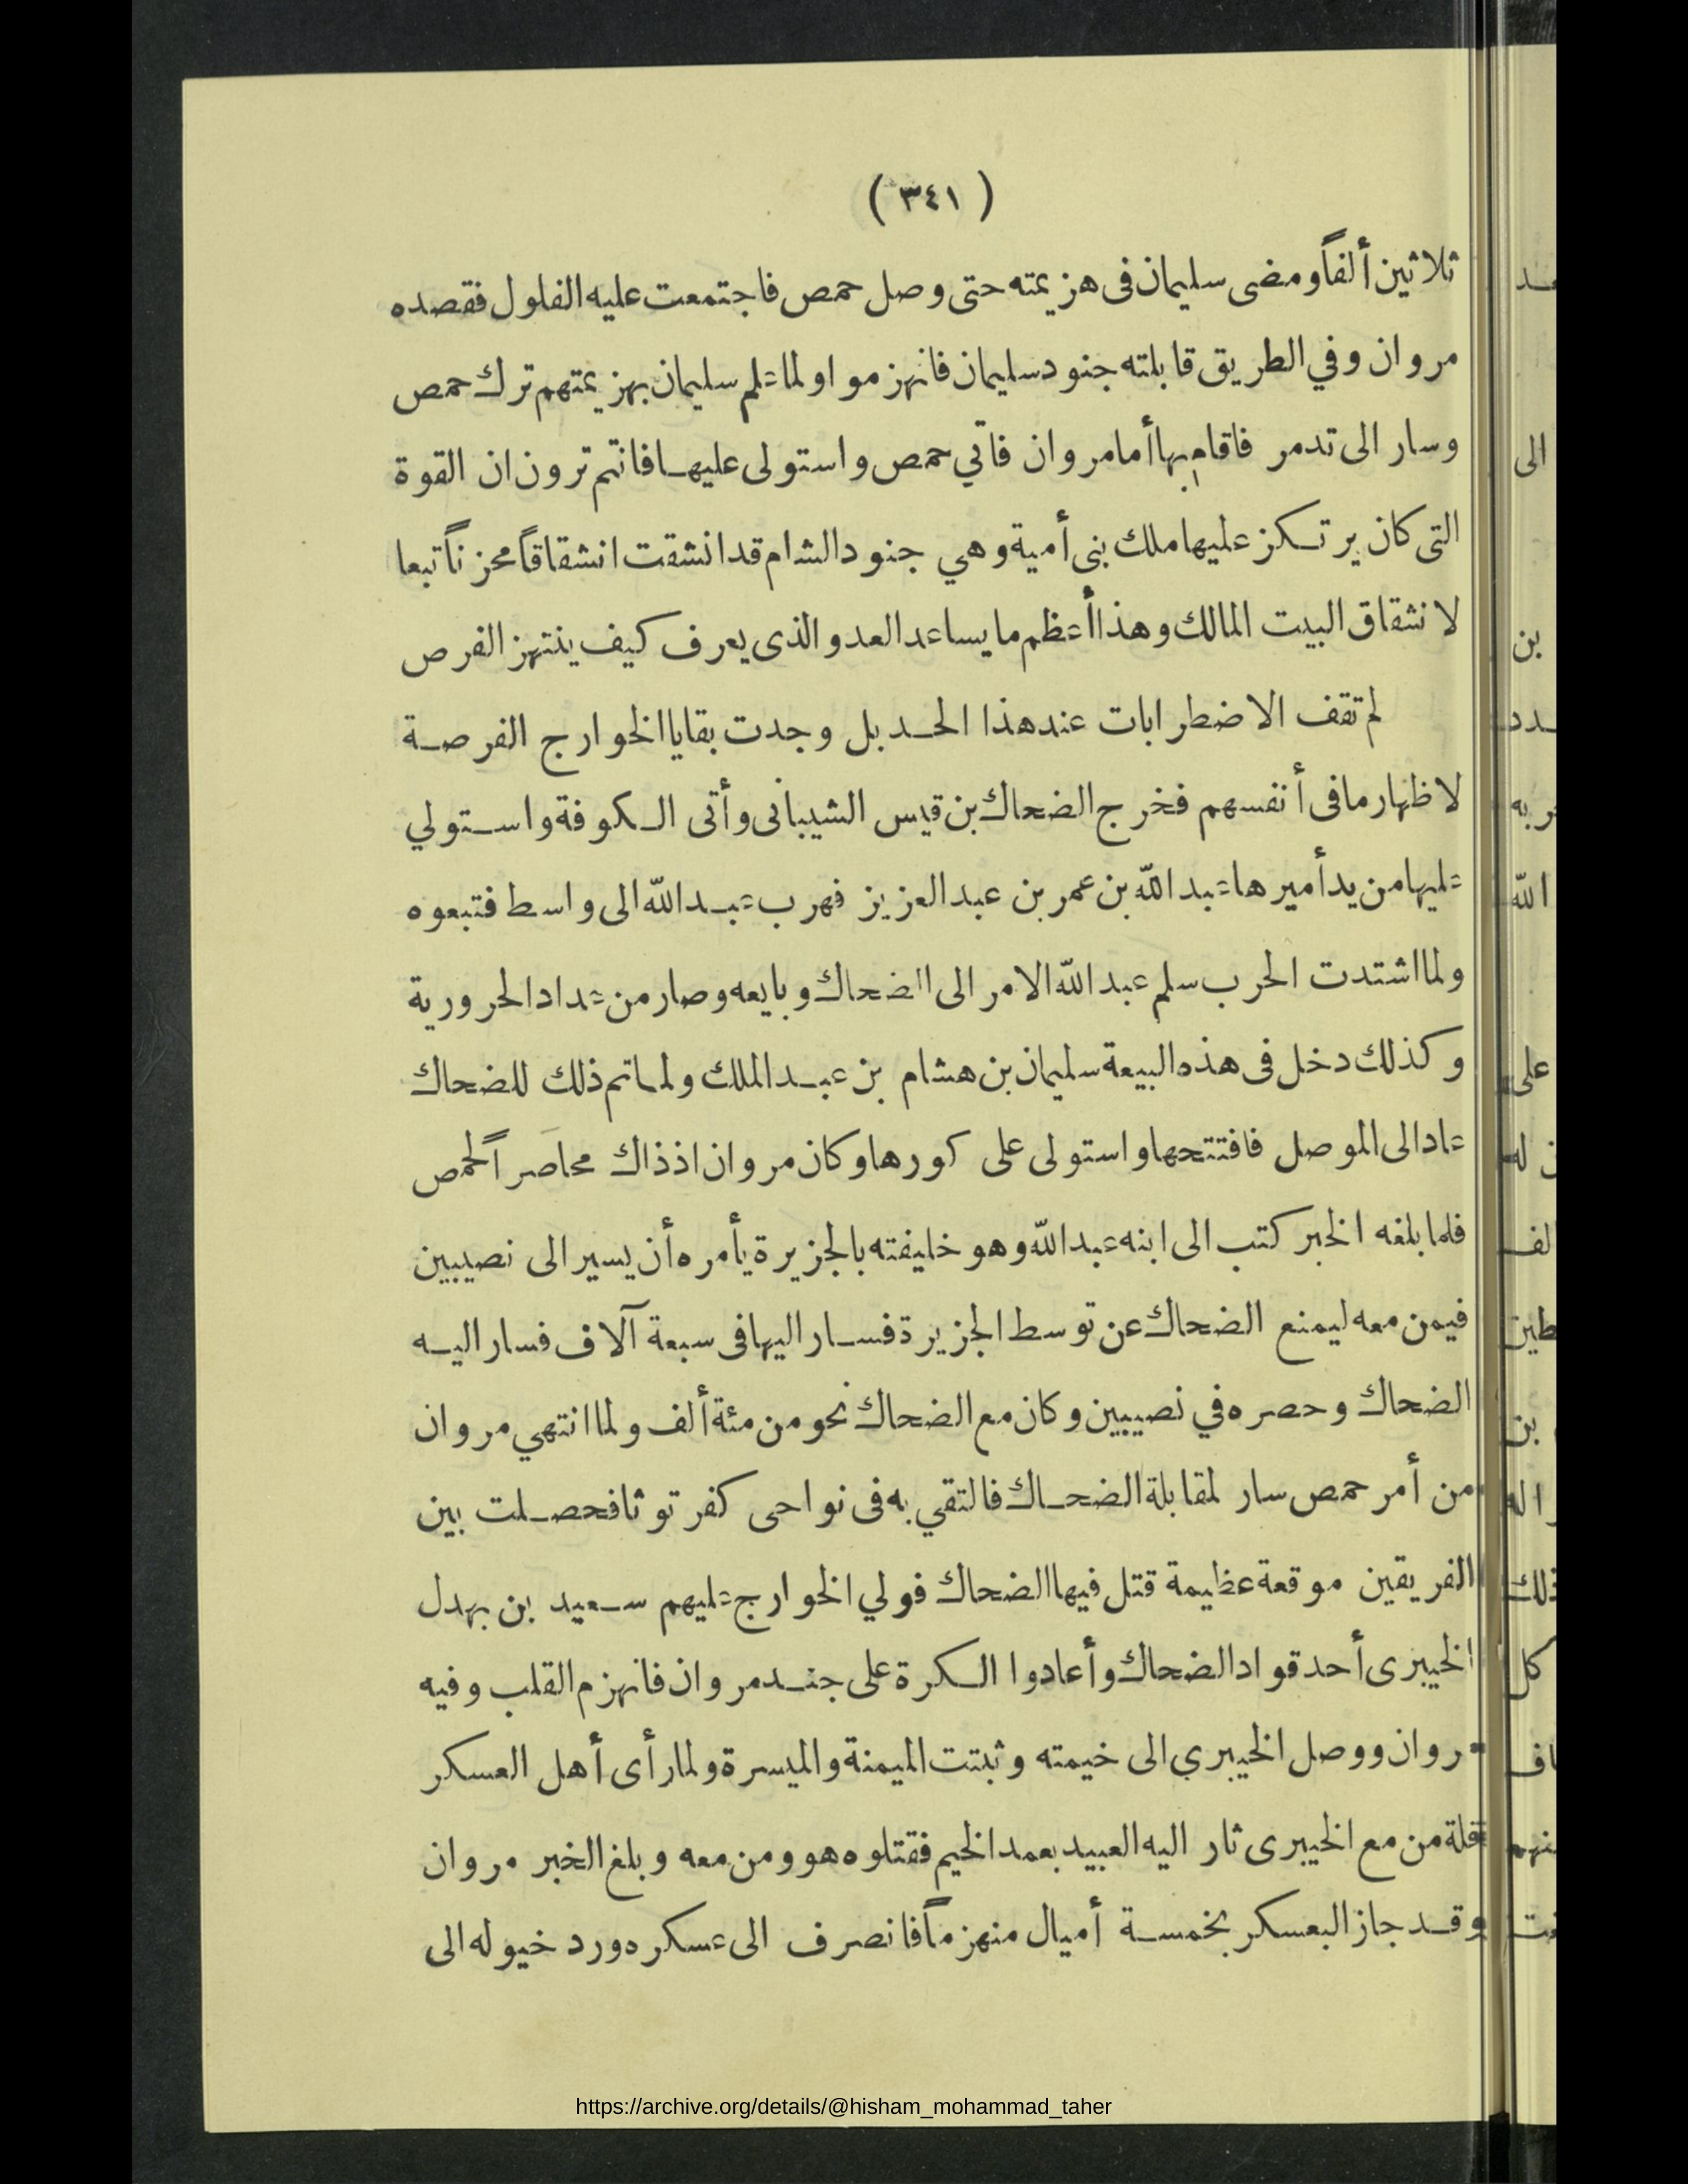 ( ٣٤١ )
ثلاثين ألفاً ومضى سليمان فى هزيمته حتى وصل حمص فاجتمعت عليه الفلول فقصده
مروان وفي الطريق قابلته جنود سليمان فانهزموا ولما علم سليمان بهزيمتهم ترك حمص
وسار الى تدمر فاقام بها أما مروان فاتي حمص واستولى عليها فانتم ترون ان القوة
التى كان يرتكز عليها ملك بنى أمية وهي جنود الشام قد انشقت انشقاقاً محزناً تبعا
لانشقاق البيت المالك وهذا أعظم ما يساعد العدو الذى يعرف كيف ينتهز الفرص
لم تقف الاضطرابات عند هذا الحد بل وجدت بقايا الخوارج الفرصة
لاظهار ما فى أنفسهم فخرج الضحاك بن قيس الشيبانى وأتى الكوفة واستولي
عليها من يد أميرها عبد الله بن عمر بن عبد العزيز فهرب عبد الله الى واسط فتبعوه
ولما اشتدت الحرب سلم عبد الله الامر الى الضحاك وبايعه وصار من عداد الحرورية
وكذلك دخل فى هذه البيعة سليمان بن هشام بن عبد الملك ولما تم ذلك للضحاك
عاد الى الموصل فافتتحها واستولى على كورها وكان مروان اذ ذاك محاصراً لحمص
فلما بلغه الخبر كتب الى ابنه عبد الله وهو خليفته بالجزيرة يأمره أن يسير الى نصيبين
فيمن معه ليمنع الضحاك عن توسط الجزيرة فسار اليها فى سبعة آلاف فسار اليه
الضحاك وحصره في نصيبين وكان مع الضحاك نحو من مئة ألف ولما انتهي مروان
من أمر حمص سار لمقابلة الضحاك فالتقي به فى نواحى كفرتوثا فحصلت بين
الفريقين موقعة عظيمة قتل فيها الضحاك فولي الخوارج عليهم سعيد بن بهدل
الخيبرى أحد قواد الضحاك وأعادوا الكرة على جند مروان فانهزم القلب وفيه
مروان ووصل الخيبري الى خيمته وثبتت الميمنة والميسرة ولما رأى أهل العسكر
قلة من مع الخيبرى ثار اليه العبيد بعمد الخيم فقتلوه هو ومن معه وبلغ الخبر مروان
وقد جاز البعسكر بخمسة أميال منهزماً فانصرف الى عسكره ورد خيوله الى
https://archive.org/details/@hisham_mohammad_taher